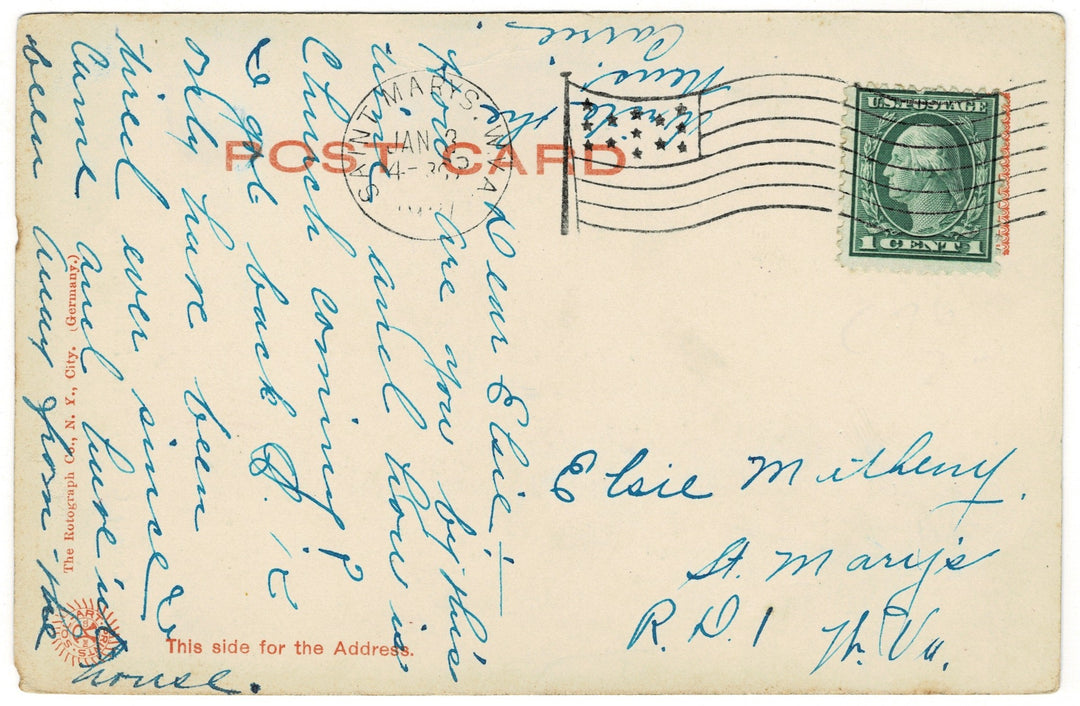 POST CARD
SAINT MARYS. W. VA.
JAN 3
4-30P
U.S. POSTAGE
1 CENT 1
Dear Elsie:
How are you by this
time and how is
Church coming?
I got back O.K.
Only have been
tired ever since I
came and have not
been away from the
house.
Write the
news,
Carrie.
Elsie Metheny.
St. Mary's
R.D. 1 W. Va.
The Rotograph Co., N. Y., City. (Germany.)
This side for the Address.